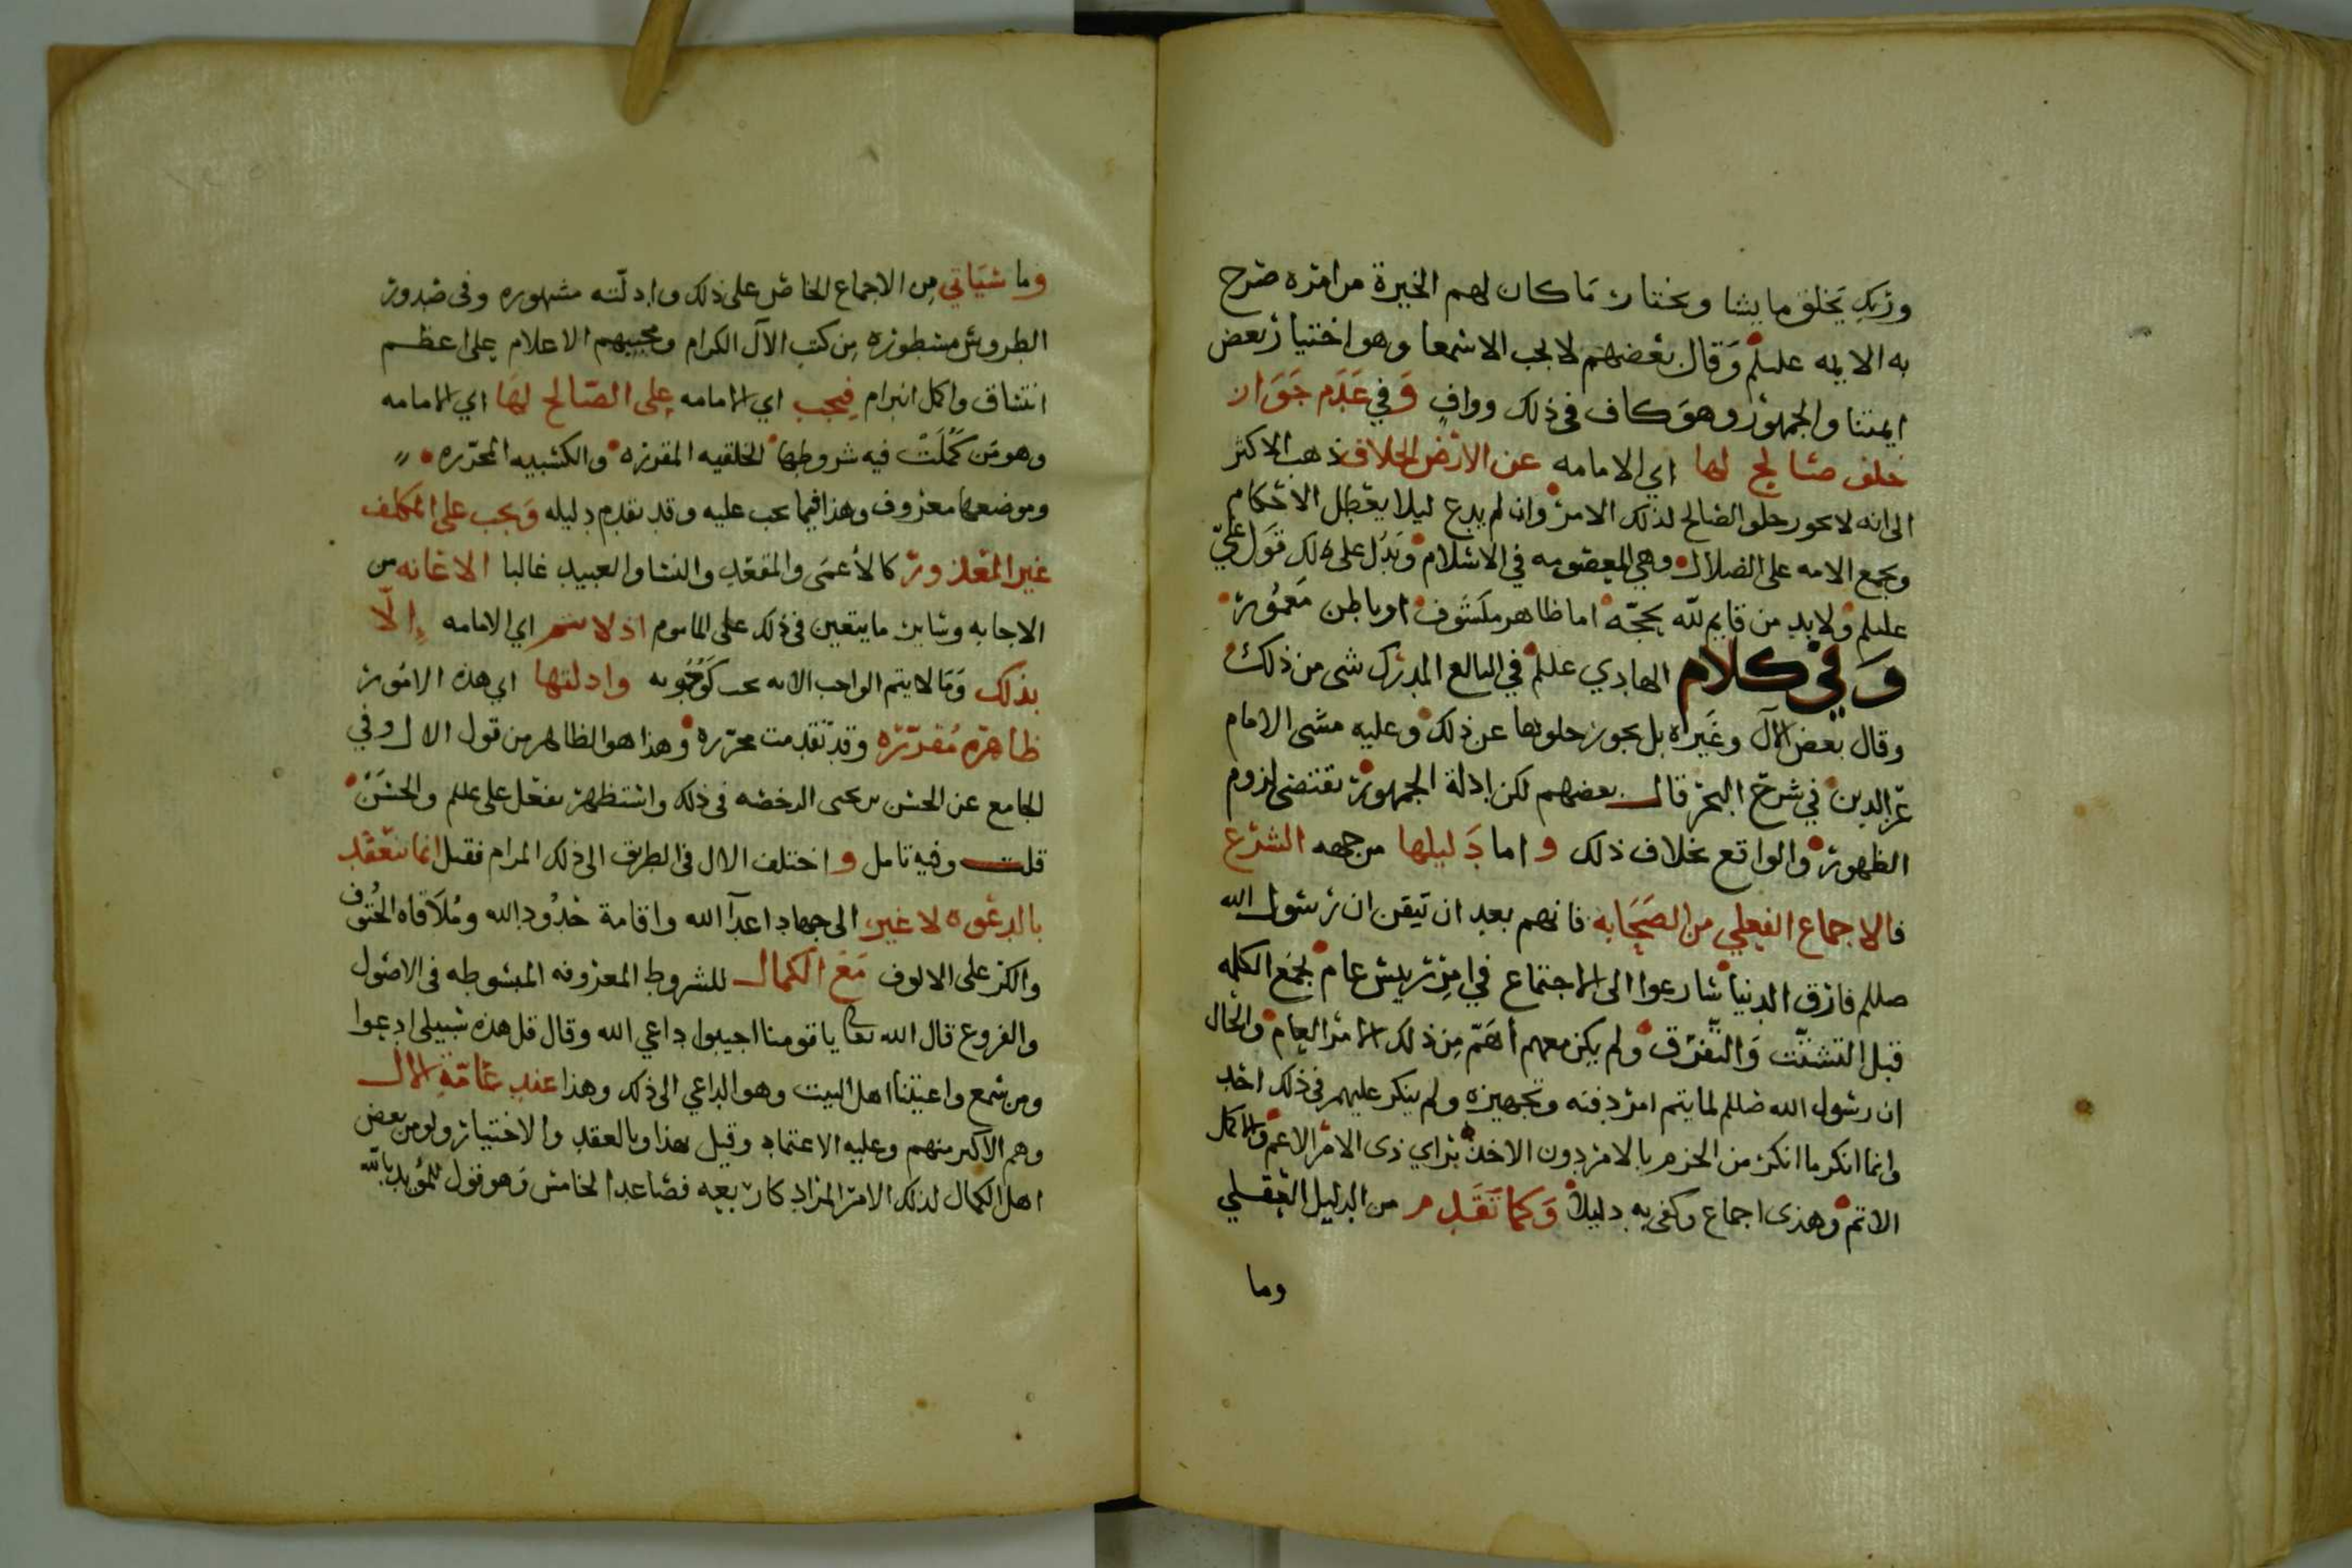 وربك يخلق ما يشا ويختار ما كان لهم الخيرة من امره صرح
به الايمه علىلم وقال بعضهم لا يجب الا سمعا وهو اختيار بعض
ايمتنا والجمهور وهو كاف في ذلك وواف وفي عدم جواز
خلف صالح لها اي الامامه عن الارض الخلاف ذهب الاكثر
الى انه لا يجوز خلو الصالح لذلك الامر وان لم يدع ليلا يعطل الاحكام
ويجمع الامه على الضلال وهي المعصومه في الاسلام ويدل على ذلك قول علي
علىلم ولا بد من قايم لله بحجه اما ظاهر مكشوف او باطن معمور
وفي كلام الهادي علىلم في البالغ المدرك شي من ذلك
وقال بعض الآل وغيره بل يجوز خلوها عن ذلك وعليه مشى الامام
عز الدين في شرح البحر قال بعضهم لكن ادلة الجمهور تقتضي لزوم
الظهور والواقع بخلاف ذلك و اما دليلها من جهه الشرع
فالاجماع الفعلي من الصحابه فانهم بعد ان تيقن ان رسول الله
صللم فارق الدنيا سارعوا الى الاجتماع في امر رييس عام لجمع الكلمه
قبل التشتت والتفرق ولم يكن معهم أهم من ذلك الامر العام والحال
ان رسول الله صللم لما يتم امر دفنه وتجهيزه ولم ينكر عليهم في ذلك احد
وانما انكر ما انكر من الحزم بالامر دون الاخذ براي ذى الامر الاعم والاكمل
الاتم وهذى اجماع وكفى به دليلا وكما تقدم من الدليل العقلي
وما
وما سياتي من الاجماع الخاص على ذلك وادلته مشهوره وفي صدور
الطروس مسطوره من كتب الآل الكرام ومحبيهم الاعلام على اعظم
اتساق واكمل ابرام فيجب اي الامامه على الصالح لها اي الامامه
وهو من كملت فيه شروطها الخلقيه المقرره والكسبيه المحرره
وموضعها معروف وهذا فيما يجب عليه وقد تقدم دليله ويجب على المكلف
غير المعذور كالاعمى والمقعد والنسا والعبيد غالبا الاعانه من
الاجابه وساير ما يتعين في ذلك على الماموم اذ لا تتم اي الامامه إلا
بذلك وما لا يتم الواجب الا به يجب كوجوبه وادلتها اي هذه الامور
ظاهره مقرره وقد تقدمت محرره وهذا هو الظاهر من قول الال وفي
الجامع عن الحسن بن يحيى الرخصه في ذلك واستظهر بفعل علي علىلم والحسن
قلت وفيه تامل و اختلف الال في الطريق الى ذلك المرام فقيل انما تنعقد
بالدعوه لا غير الى جهاد اعدآ الله واقامة حدود الله وملاقاه الحتوف
والكر على الالوف مع الكمال للشروط المعروفه المبسوطه في الاصول
والفروع قال الله تعالى يا قومنا اجيبوا داعي الله وقال قل هذه سبيلي ادعوا
ومن سمع واعيتنا اهل البيت وهو الداعي الى ذلك وهذا عند عامة الال
وهم الاكبر منهم وعليه الاعتماد وقيل بهذا وبالعقد والاختيار ولو من بعض
اهل الكمال لذلك الامر المراد كاربعه فصاعدا لخامس وهو قول للمؤيد بالله